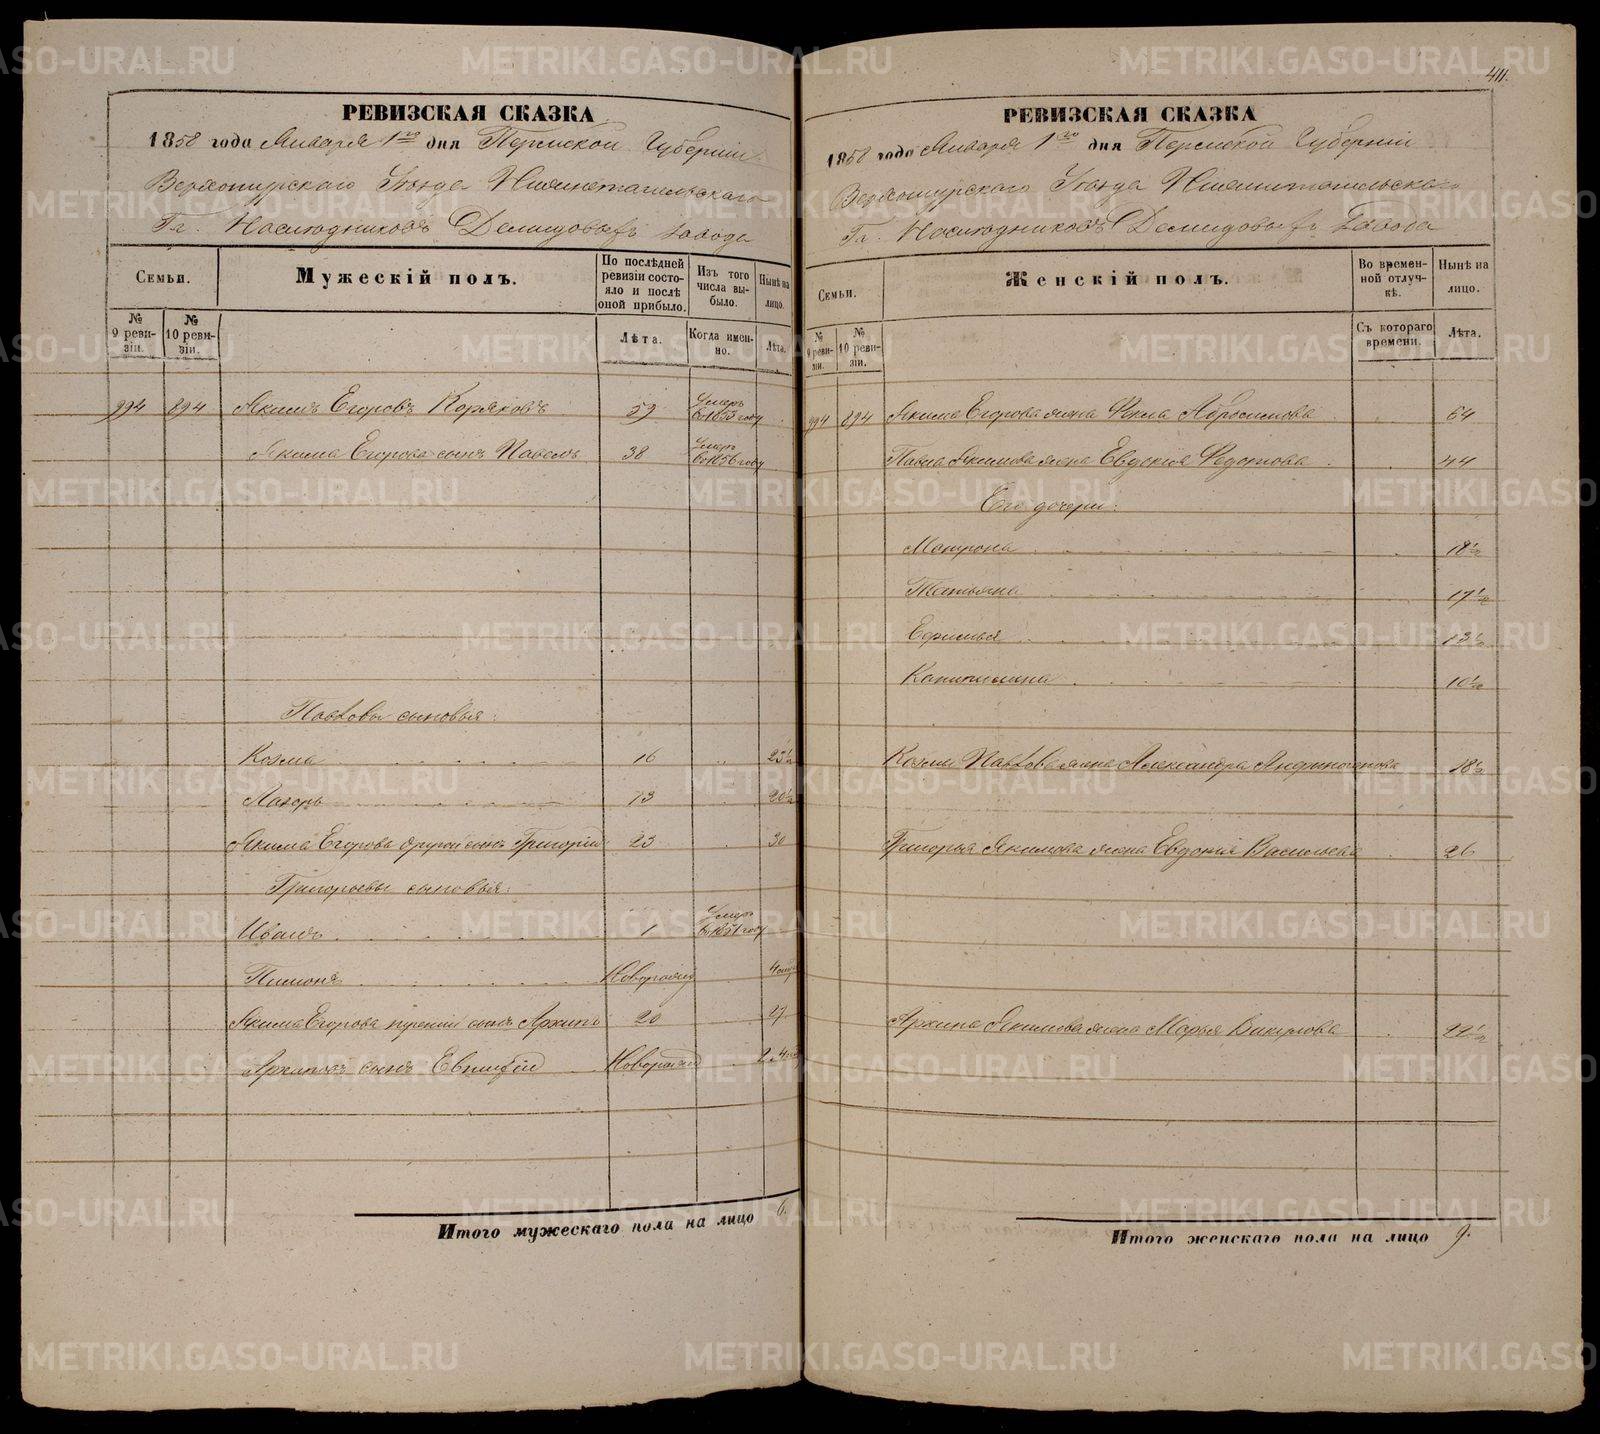 411.
РЕВИЗСКАЯ СКАЗКА
1858 года Января 1го дня Пермской Губерніи
Верхотурскаго Уѣзда Нижнетагильскаго
Гг. Наслѣдниковъ Демидовыхъ завода
Семьи.
Мужескій полъ.
По послѣдней ревизіи состояло и послѣ оной прибыло.
Изъ того числа выбыло.
Нынѣ на лицо.
№ 9 ревизіи.
№ 10 ревизіи.
Лѣта.
Когда именно.
Лѣта.
994 894 Якимъ Егоровъ Коряковъ 59 Умеръ въ 1853 году
Якима Егорова сынъ Павелъ 38 Умеръ въ 1856 году
Павловы сыновья:
Козма 16 23 1/2
Лазарь 13 20 1/2
Якима Егорова другой сынъ Григорій 23 30
Григорьевы сыновья:
Иванъ 1 Умеръ въ 1851 году
Пимонъ Новорожд
Якима Егорова третій сынъ Архипъ 20 27
Архиповъ сынъ Евпифій Новорожд
Итого мужескаго пола на лицо 6.
РЕВИЗСКАЯ СКАЗКА
1858 года Января 1го дня Пермской Губерніи
Верхотурскаго Уѣзда Нижнетагильскаго
Гг. Наслѣдниковъ Демидовыхъ Завода
Семьи.
Женскій полъ.
Во временной отлучкѣ.
Нынѣ на лицо.
№ 9 ревизіи.
№ 10 ревизіи.
Съ котораго времени.
Лѣта.
994 894 Якима Егорова жена Фекла Абросимова 64
Павла Якимова жена Евдокія Федотова 44
Его дочери:
Матрона 18 1/2
Татьяна 17 1/2
Ефимья 13 1/2
Капитолина 10 1/2
Козмы Павлова жена Александра Андриногенова 18 1/2
Григорья Якимова жена Евдокія Васильева 26
Архипа Якимова жена Марья Викулова 22 1/2
Итого женскаго пола на лицо 9.
METRIKI.GASO-URAL.RU